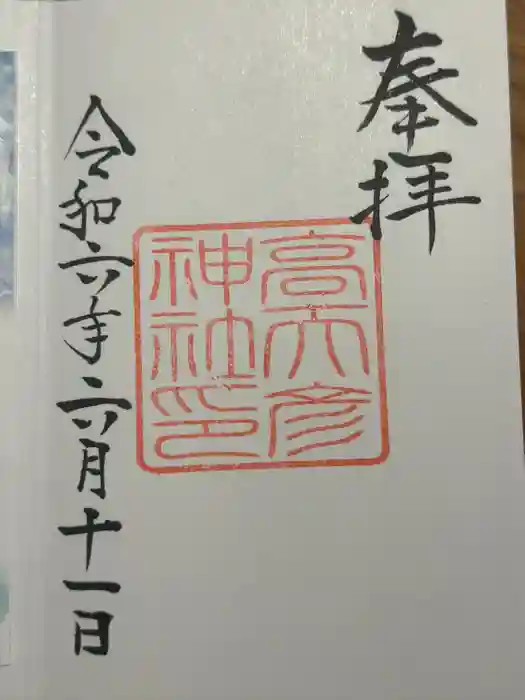 奉拝
高天彦
神社印
令和六年六月十一日